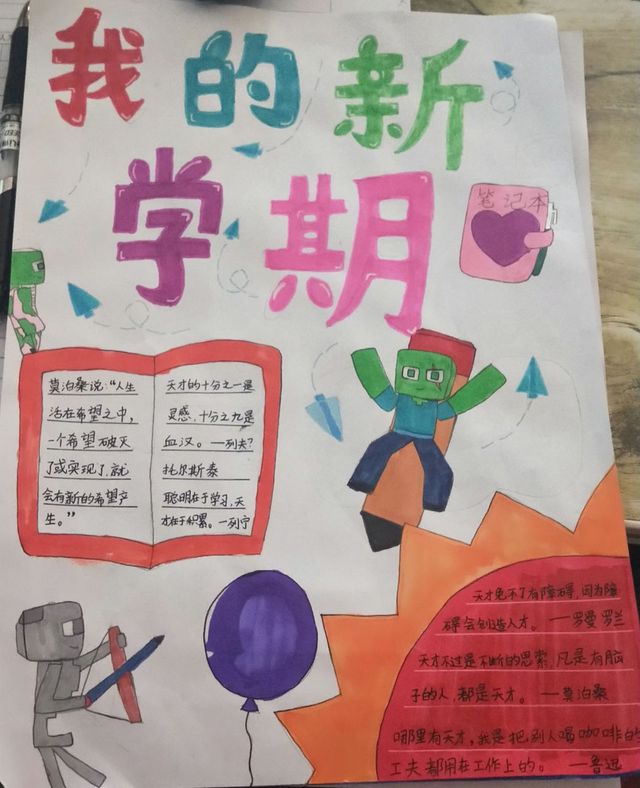 我的新
学期
笔记本
莫泊桑说:“人生
活在希望之中,
一个希望破灭
了或实现了,就
会有新的希望产
生。”
天才的十分之一是
灵感,十分之九是
血汗。一列夫?
托尔斯泰
聪明在于学习,天
才在于积累。一列宁
天才免不了有障碍,因为障
碍会创造人才。一罗曼 罗兰
天才不过是不断的思索,凡是有脑
子的人,都是天才。一莫泊桑
哪里有天才,我是把别人喝咖啡的
工夫都用在工作上的。一鲁迅